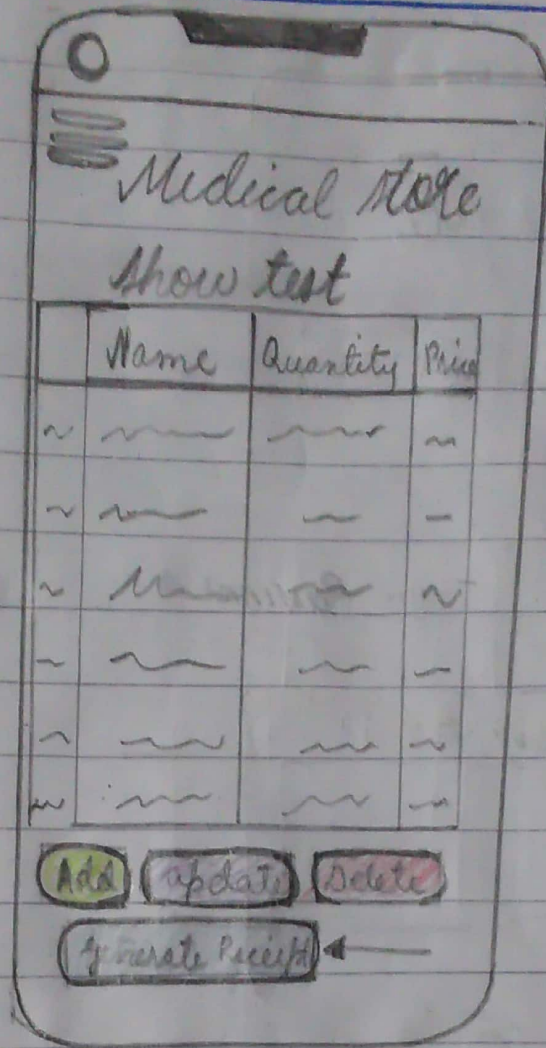 Medical store
Show test
Name Quantity Price
Add update Delete
Generate Receipt